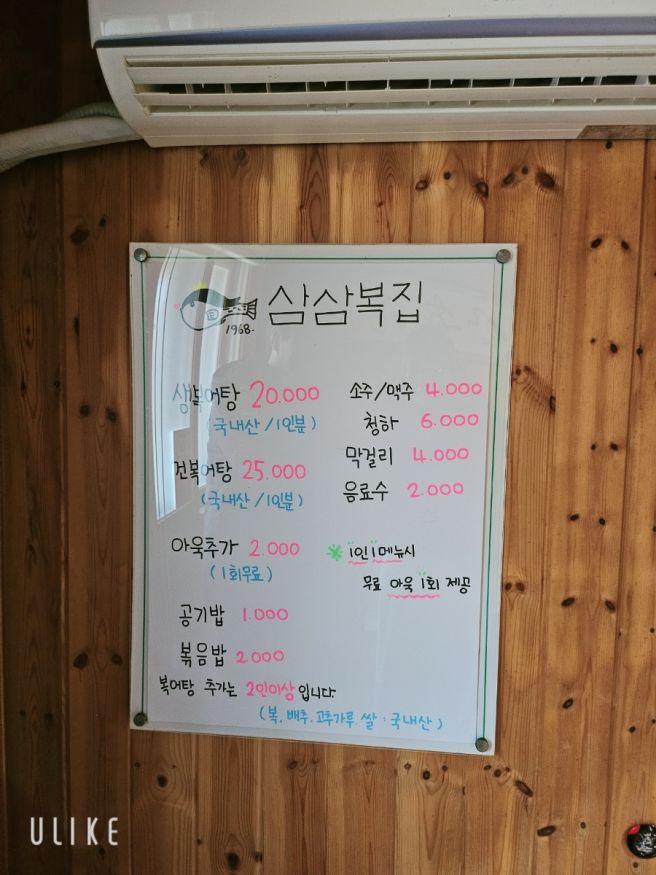 1968.
삼삼복집
생복어탕 20.000
(국내산/1인분)
건복어탕 25.000
(국내산/1인분)
아욱추가 2.000
(1회무료)
공기밥 1.000
볶음밥 2.000
복어탕 추가는 2인이상입니다
(복, 배추, 고추가루, 쌀 : 국내산)
소주/맥주 4.000
청하 6.000
막걸리 4.000
음료수 2.000
※ 1인 1메뉴시
무료 아욱 1회 제공
ULIKE